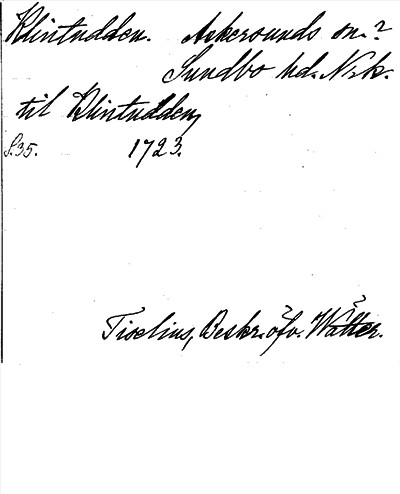 Klintudden. Askersunds sn.?
Sundbo hd. Nrk.
til Klintudden,
S.35. 1723.
Tiselius, Beskr. öfv. Wätter.